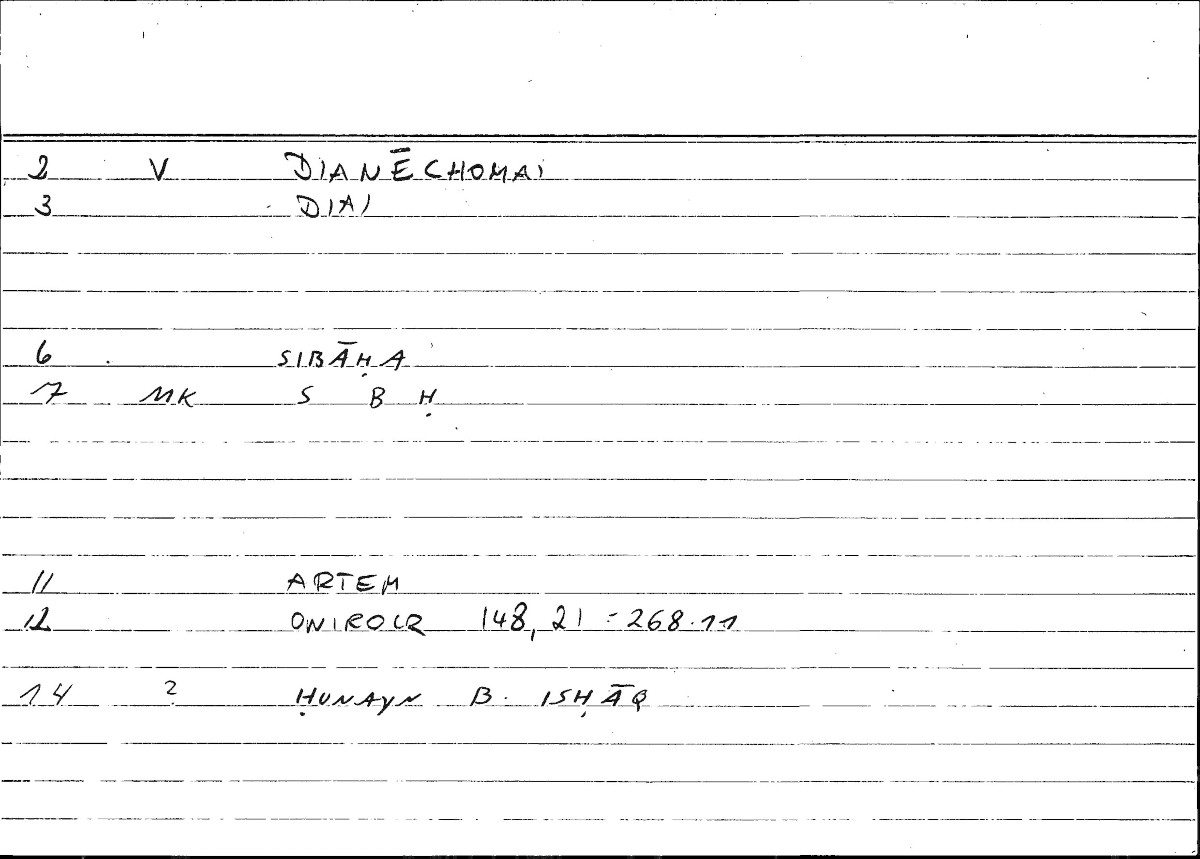 2 V DIANĒCHOMAI
3 DIAI
6 SIBĀḤA
7 MK S B Ḥ
11 ARTEM
12 ONIROCR 148, 21 = 268.11
14 2 ḤUNAYN B. ISḤĀQ